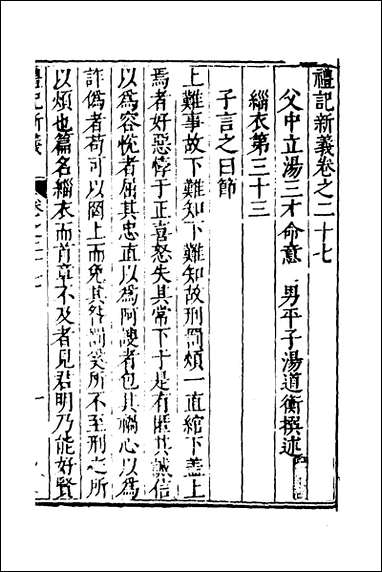 禮記新義卷之二十七
父中立湯三才命意　男平子湯道衡撰述
緇衣第三十三
子言之曰節
上難事故下難知下難知故刑罰煩一直綰下蓋上
焉者好惡悖于正喜怒失其常下于是有匿其誠信
以為容悅者屈其忠直以為阿諛者包其禍心以為
詐偽者苟可以罔上而免其咎罰奚所不至刑之所
以煩也篇名緇衣而首章不及者見君明乃能好賢
禮記新義　卷之二十七　一